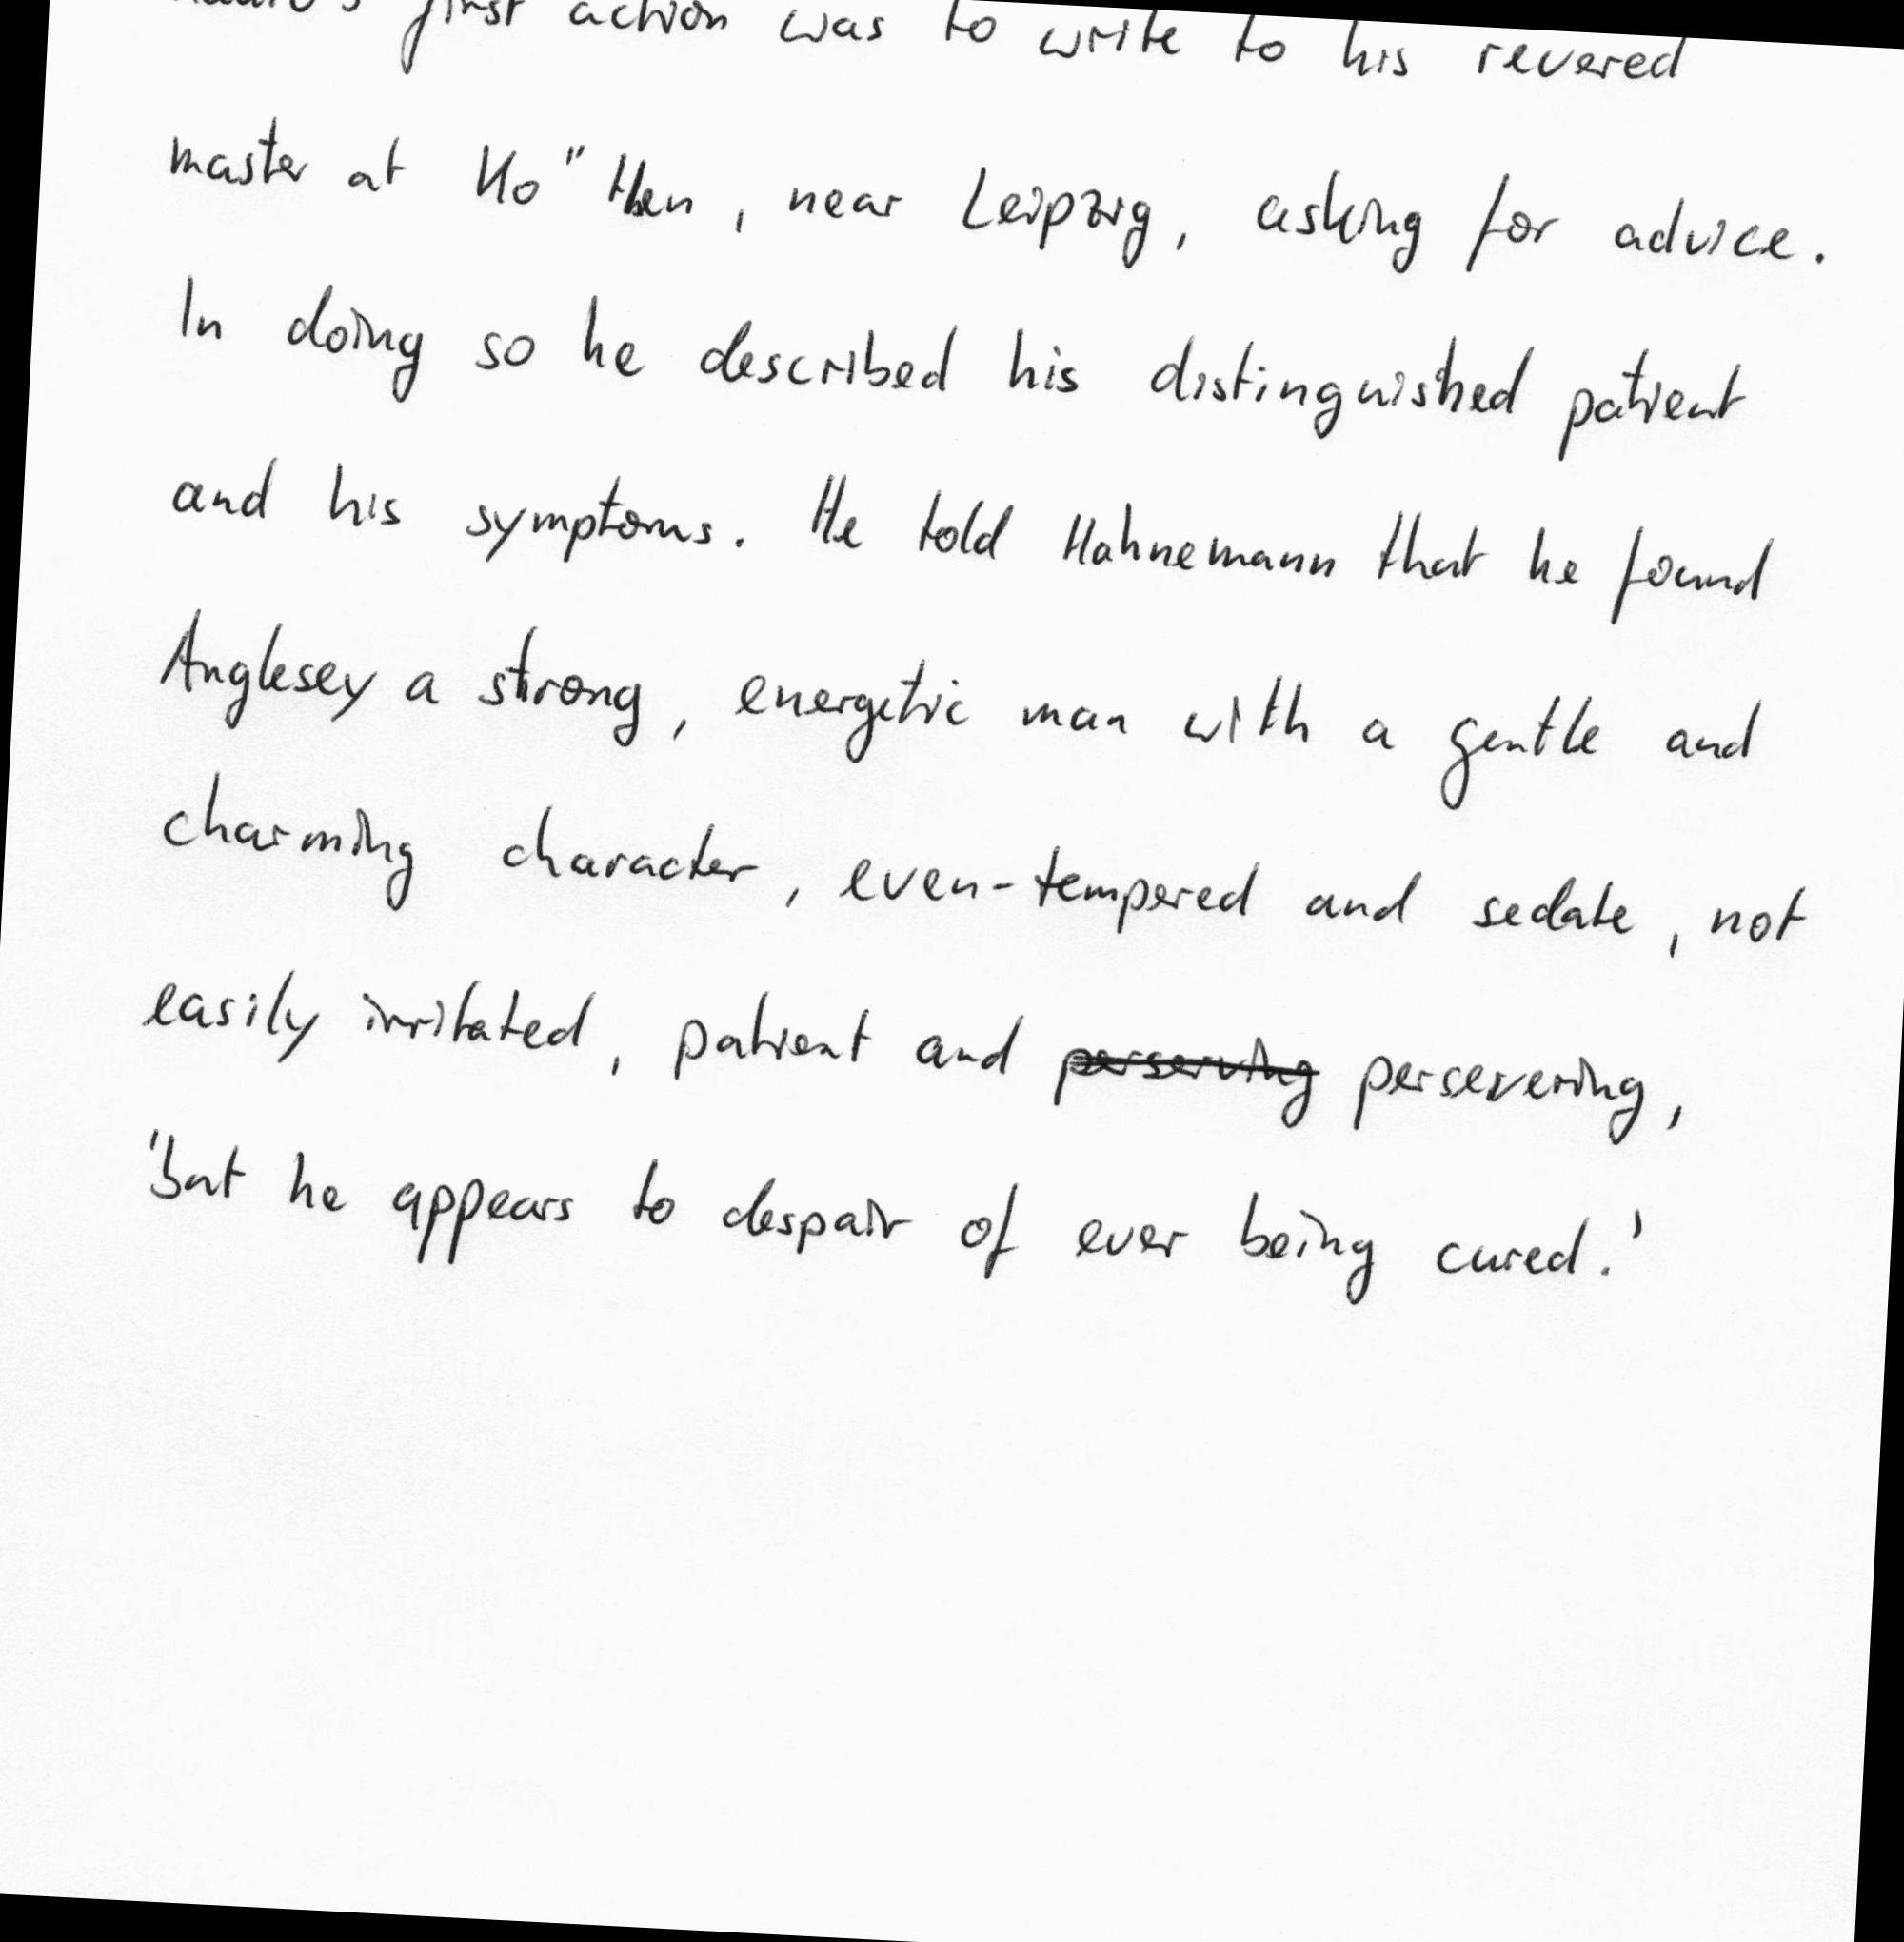 first action was to write to his revered
master at Ko"then, near Leipzig, asking for advice.
In doing so he described his distinguished patient
and his symptoms. He told Hahnemann that he found
Anglesey a strong, energetic man with a gentle and
charming character, even-tempered and sedate, not
easily irritated, patient and perserving persevering,
'but he appears to despair of ever being cured.'